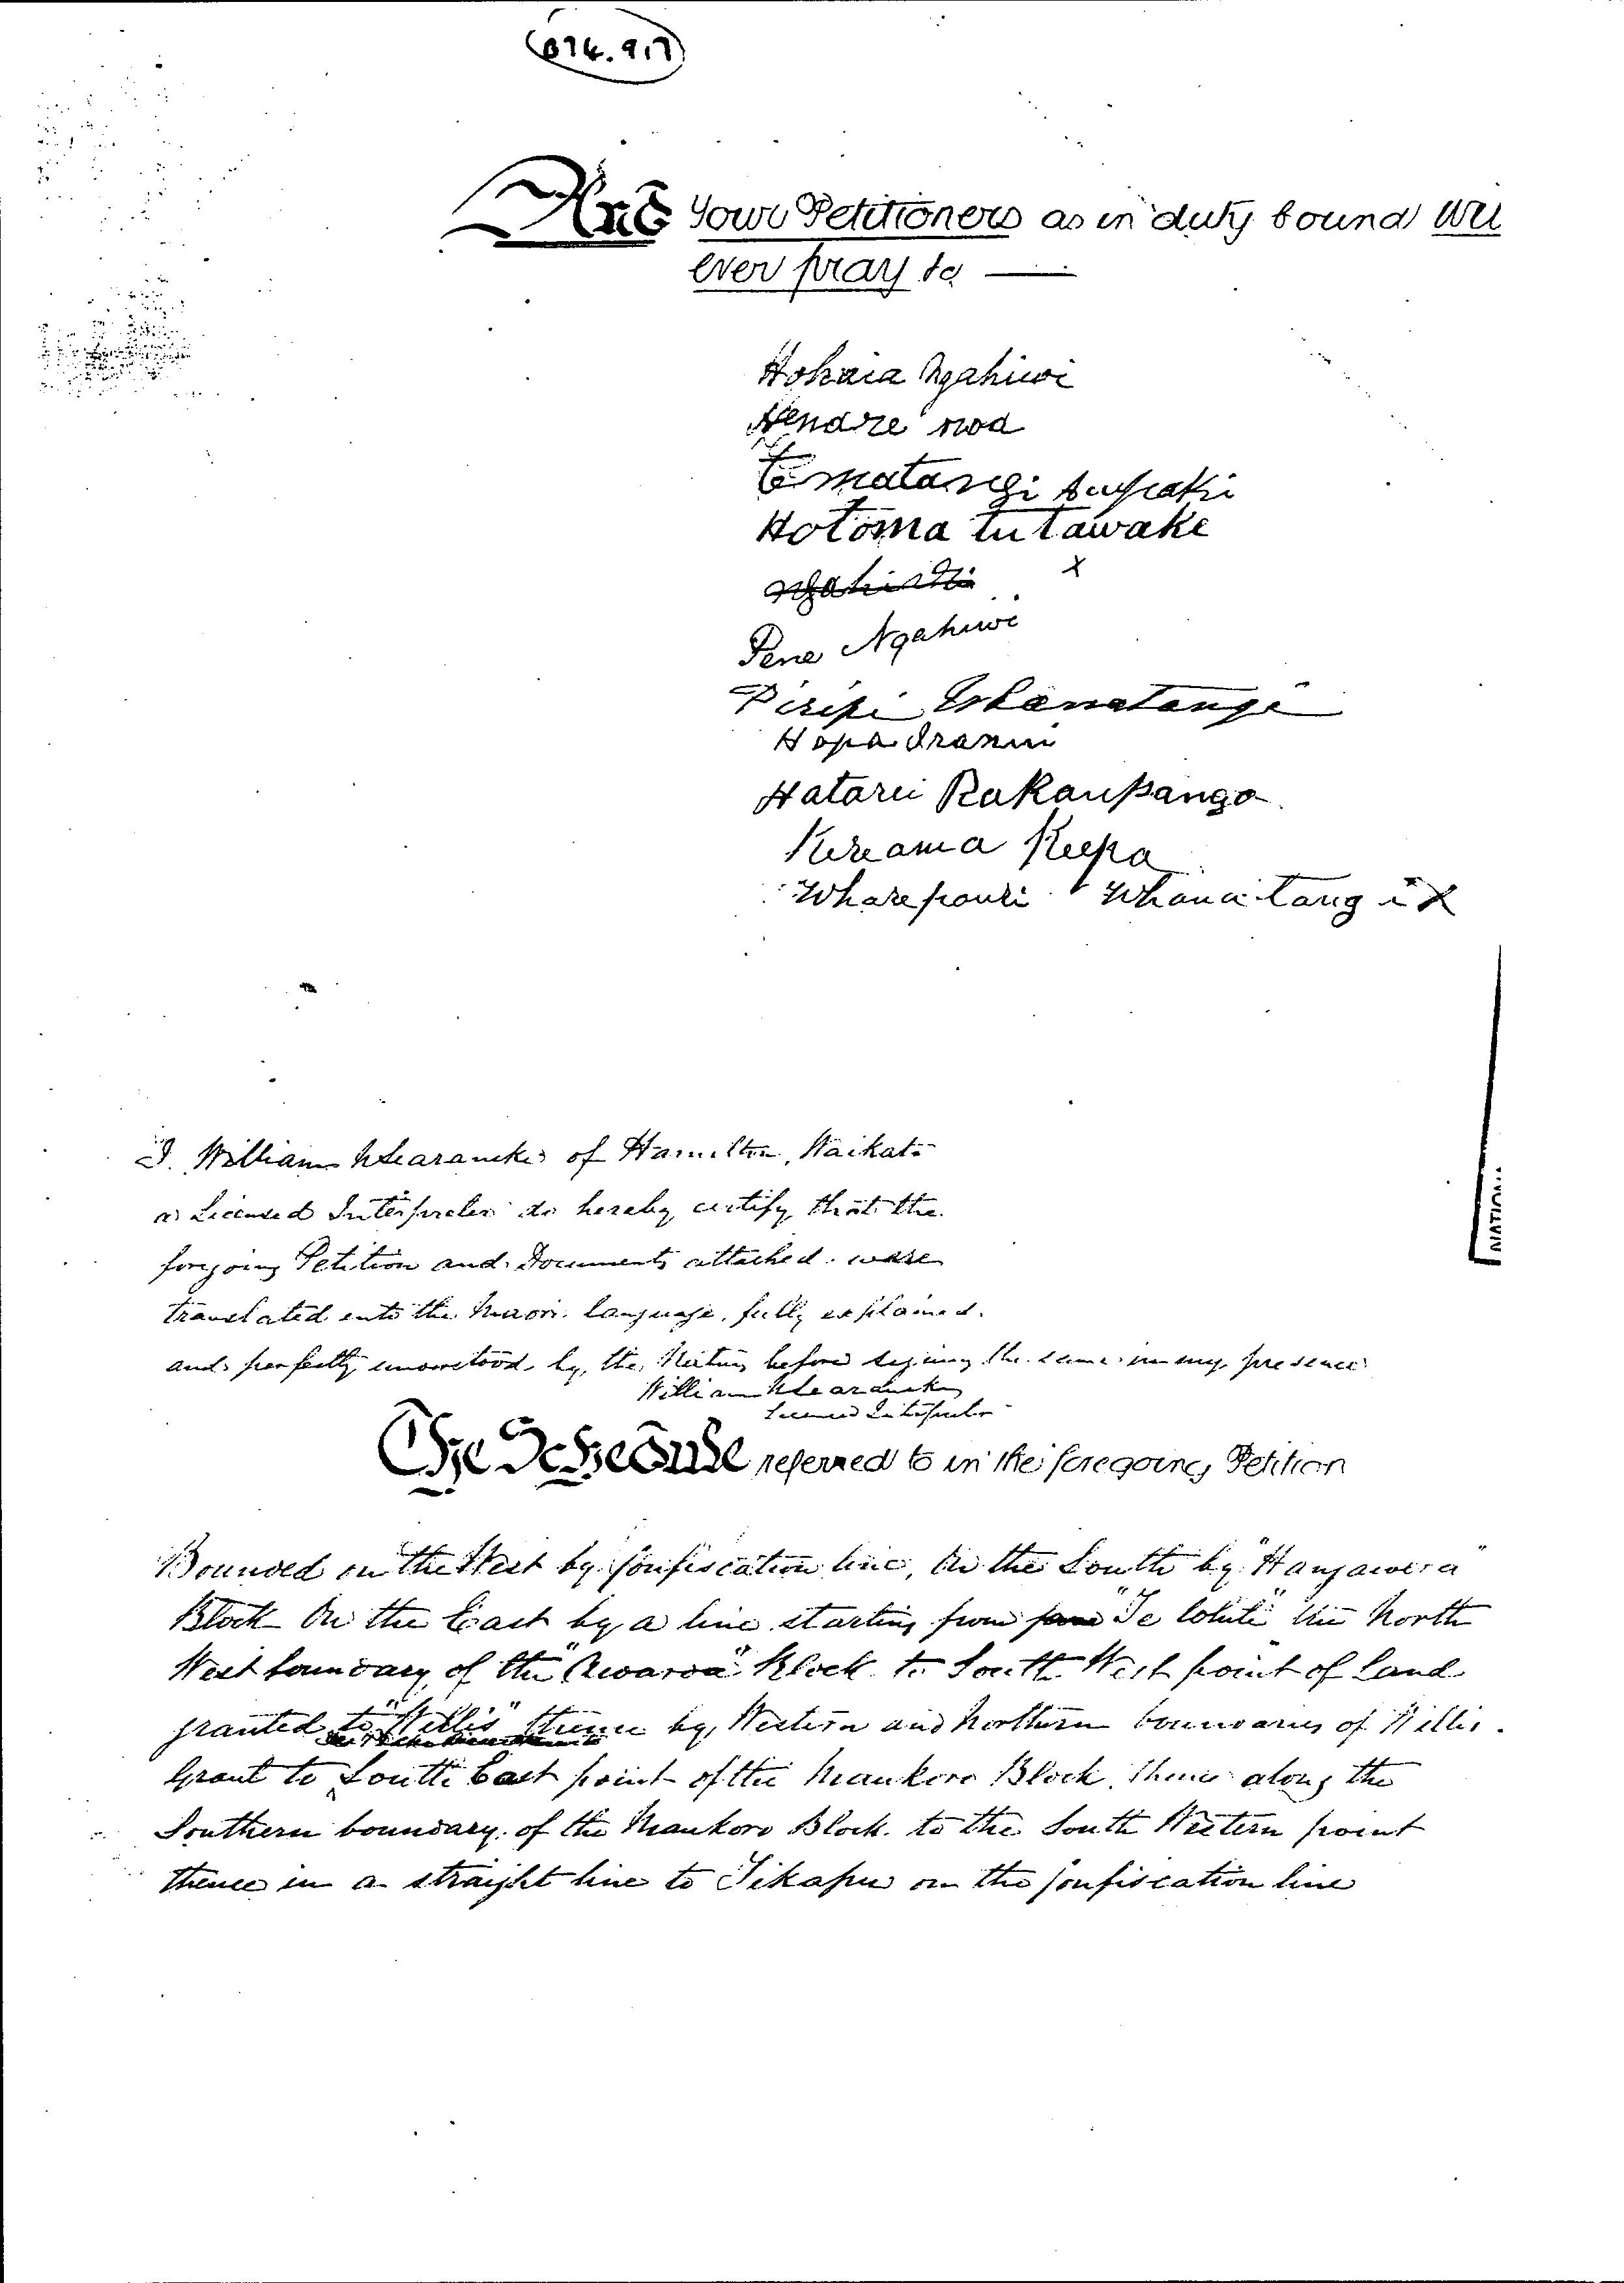 674.917
And Your Petitioners as in duty bound will
ever pray &c
Hohaia Ngahiwi
Hendre
Te matangi
Hotoma tutawake
x
Pene Ngahiwi
Piripi Whanatangi
Hopa
Hatarei Rakaupango
Kereama Keepa
Wharepouri Whanatangi x
I. William Searancke of Hamilton, Waikato
a Licensed Interpreter do hereby certify that the
foregoing Petition and Documents attached were
translated into the Maori language, fully explained
and perfectly understood by the Natives before signing the same in my presence
William Searancke
Licensed Interpreter
The Schedule referred to in the foregoing Petition
Bounded on the West by Confiscation line, On the South by "Hangawera"
Block On the East by a line starting from "Te the North
West boundary of the "Awaroa" Block to South West point of Land
granted to "Willis" thence by Western and Northern boundaries of Willis
Grant to South East point of the Maukoro Block, thence along the
Southern boundary of the Maukoro Block to the South Western point
thence in a straight line to Tikapu on the Confiscation line
NATION